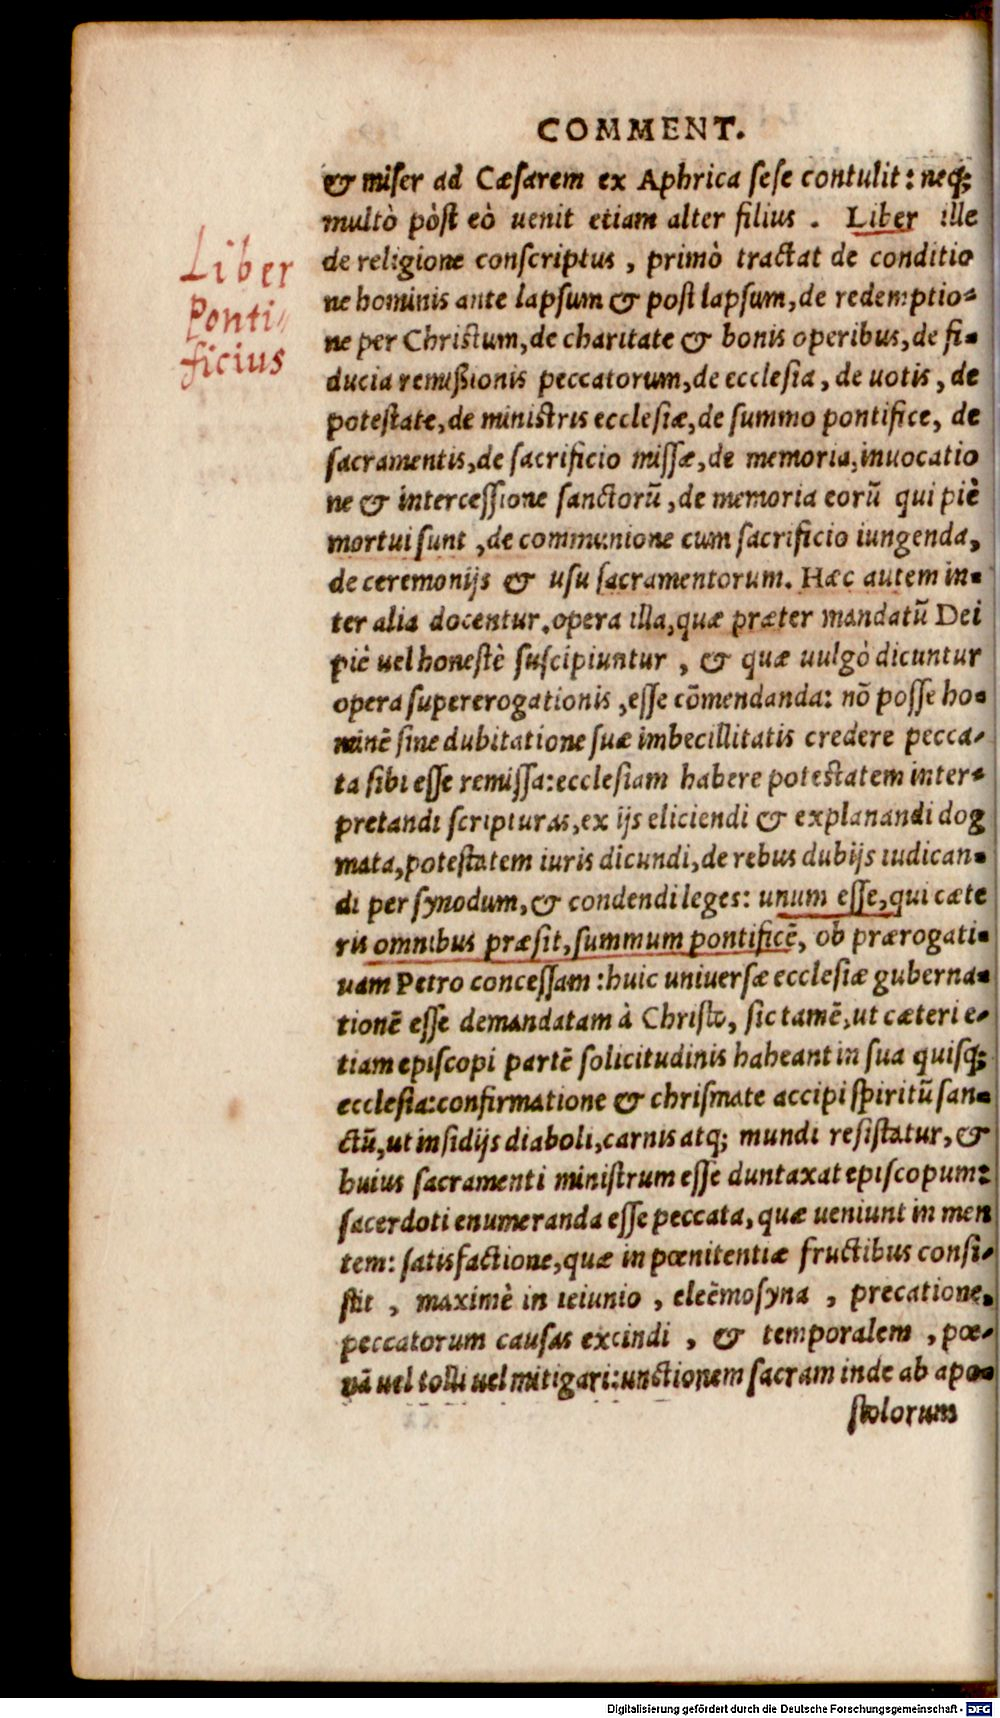 COMMENT.
& miser ad Cæsarem ex Aphrica sese contulit: neq;
multò pòst eò uenit etiam alter filius. Liber ille
de religione conscriptus, primò tractat de conditio
ne hominis ante lapsum & post lapsum, de redemptio-
ne per Christum, de charitate & bonis operibus, de fi-
ducia remißionis peccatorum, de ecclesia, de uotis, de
potestate, de ministris ecclesiæ, de summo pontifice, de
sacramentis, de sacrificio missæ, de memoria, inuocatio
ne & intercessione sanctorũ, de memoria eorũ qui piè
mortui sunt, de communione cum sacrificio iungenda,
de ceremonijs & usu sacramentorum. Hæc autem in-
ter alia docentur, opera illa, quæ præter mandatũ Dei
piè uel honestè suscipiuntur, & quæ uulgò dicuntur
opera supererogationis, esse cõmendanda: nõ posse ho-
minẽ sine dubitatione suæ imbecillitatis credere pecca-
ta sibi esse remissa: ecclesiam habere potestatem inter-
pretandi scripturas, ex ijs eliciendi & explanandi dog
mata, potestatem iuris dicundi, de rebus dubijs iudican-
di per synodum, & condendi leges: unum esse, qui cæte
ris omnibus præsit, summum pontificẽ, ob prærogati-
uam Petro concessam: huic uniuersæ ecclesiæ guberna-
tionẽ esse demandatam à Christo, sic tamẽ, ut cæteri e-
tiam episcopi partẽ solicitudinis habeant in sua quisq;
ecclesia: confirmatione & chrismate accipi spiritũ san-
ctũ, ut insidijs diaboli, carnis atq; mundi resistatur, &
huius sacramenti ministrum esse duntaxat episcopum:
sacerdoti enumeranda esse peccata, quæ ueniunt in men
tem: satisfactione, quæ in pœnitentiæ fructibus consi-
stit, maximè in ieiunio, eleẽmosyna, precatione,
peccatorum causas excindi, & temporalem, pœ-
nã uel tolli uel mitigari: unctionem sacram inde ab apo-
stolorum
Liber
Ponti-
ficius
Digitalisierung gefördert durch die Deutsche Forschungsgemeinschaft - DFG